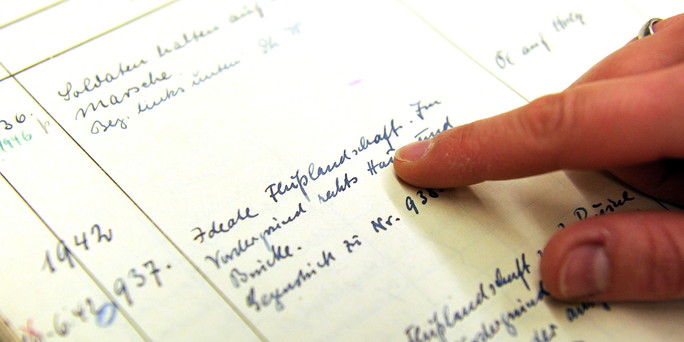 Soldaten halten auf
Marsche
Bez. links unten:
Öl auf Holz
36.
1942
937.
Ideale Flußlandschaft. Im
Vordergrund rechts Haus und
Brücke.
Gegenstück zu Nr. 938
Flußlandschaft mit Ruine
Vordergrund